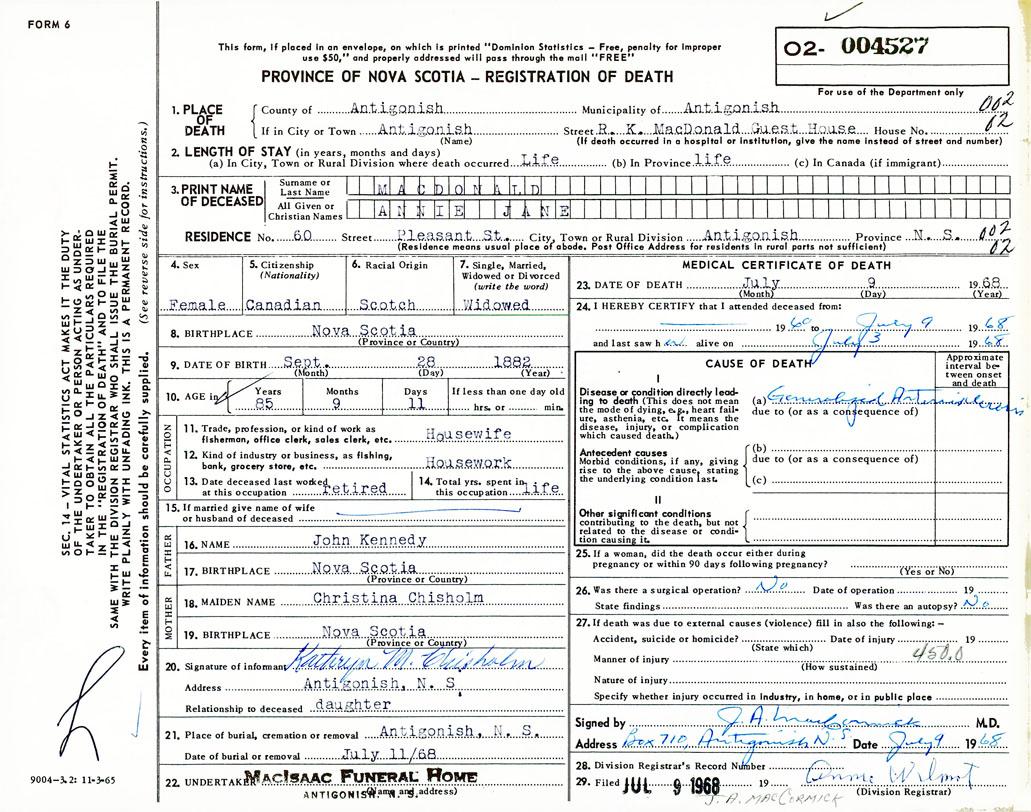 FORM 6
This form, if placed in an envelope, on which is printed "Dominion Statistics – Free, penalty for improper
use $50," and properly addressed will pass through the mail "FREE"
PROVINCE OF NOVA SCOTIA – REGISTRATION OF DEATH
02- 004527
For use of the Department only
SEC. 14 – VITAL STATISTICS ACT MAKES IT THE DUTY
OF THE UNDERTAKER OR PERSON ACTING AS UNDER-
TAKER TO OBTAIN ALL THE PARTICULARS REQUIRED
IN THE "REGISTRATION OF DEATH" AND TO FILE THE
SAME WITH THE DIVISION REGISTRAR WHO SHALL ISSUE THE BURIAL PERMIT.
WRITE PLAINLY WITH UNFADING INK. THIS IS A PERMANENT RECORD.
Every item of information should be carefully supplied. (See reverse side for instructions.)
1. PLACE OF DEATH
County of Antigonish Municipality of Antigonish 002
If in City or Town Antigonish Street R. K. MacDonald Guest House House No. 02
(Name) (If death occurred in a hospital or institution, give the name instead of street and number)
2. LENGTH OF STAY (in years, months and days)
(a) In City, Town or Rural Division where death occurred Life (b) In Province life (c) In Canada (if immigrant)
3. PRINT NAME OF DECEASED
Surname or Last Name MACDONALD
All Given or Christian Names ANNIE JANE
RESIDENCE No. 60 Street Pleasant St. City, Town or Rural Division Antigonish Province N. S. 002
(Residence means usual place of abode. Post Office Address for residents in rural parts not sufficient) 02
4. Sex
Female
5. Citizenship
(Nationality)
Canadian
6. Racial Origin
Scotch
7. Single, Married,
Widowed or Divorced
(write the word)
Widowed
8. BIRTHPLACE Nova Scotia
(Province or Country)
9. DATE OF BIRTH Sept. 28 1882
(Month) (Day) (Year)
10. AGE in
Years Months Days If less than one day old
85 9 11 hrs. or min.
OCCUPATION
11. Trade, profession, or kind of work as
fisherman, office clerk, sales clerk, etc. Housewife
12. Kind of industry or business, as fishing,
bank, grocery store, etc. Housework
13. Date deceased last worked
at this occupation retired
14. Total yrs. spent in
this occupation life
15. If married give name of wife
or husband of deceased
FATHER
16. NAME John Kennedy
17. BIRTHPLACE Nova Scotia
(Province or Country)
MOTHER
18. MAIDEN NAME Christina Chisholm
19. BIRTHPLACE Nova Scotia
(Province or Country)
20. Signature of informant Kathryn M. Chisholm
Address Antigonish, N. S.
Relationship to deceased daughter
21. Place of burial, cremation or removal Antigonish, N. S.
Date of burial or removal July 11/68
22. UNDERTAKER MACISAAC FUNERAL HOME
(Name and address)
ANTIGONISH, N. S.
9004-3.2: 11-3-65
MEDICAL CERTIFICATE OF DEATH
23. DATE OF DEATH July 9 1968
(Month) (Day) (Year)
24. I HEREBY CERTIFY that I attended deceased from:
1960 to July 9 1968
and last saw her alive on July 3 1968
CAUSE OF DEATH
Approximate
interval be-
tween onset
and death
I
Disease or condition directly lead-
ing to death (This does not mean
the mode of dying, e.g., heart fail-
ure, asthenia, etc. It means the
disease, injury, or complication
which caused death.)
(a) Generalized Arteriosclerosis
due to (or as a consequence of)
Antecedent causes
Morbid conditions, if any, giving
rise to the above cause, stating
the underlying condition last.
(b)
due to (or as a consequence of)
(c)
II
Other significant conditions
contributing to the death, but not
related to the disease or condi-
tion causing it.
25. If a woman, did the death occur either during
pregnancy or within 90 days following pregnancy?
(Yes or No)
26. Was there a surgical operation? No Date of operation 19
State findings Was there an autopsy? No
27. If death was due to external causes (violence) fill in also the following: –
Accident, suicide or homicide? Date of injury 19
(State which) 450.0
Manner of injury
(How sustained)
Nature of injury
Specify whether injury occurred in industry, in home, or in public place
Signed by J. A. MacCormick M.D.
Address Box 710, Antigonish N.S Date July 9 1968
28. Division Registrar's Record Number
29. Filed JUL 9 1968 19 Anne Wilmot
(Division Registrar)
J. A. MACCORMICK